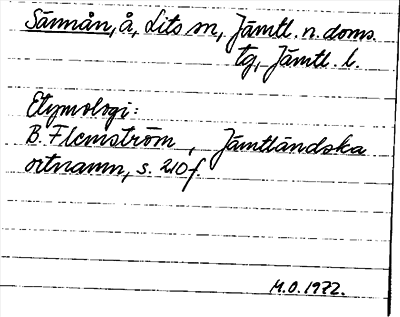 Sännån, å, Lits sn, Jämtl. n. doms.
tg, Jämtl. l.
Etymologi:
B. Flemström, Jämtländska
ortnamn, s. 210 f.
M.O. 1972.